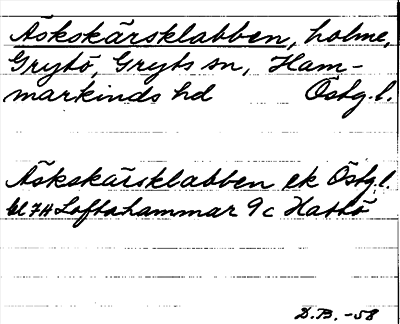 Äskskärsklabben, holme,
Grytö, Gryts sn, Ham-
markinds hd Östg. l.
Äskskärsklabben ek Östg. l.
bl 7H Loftahammar 9c Hattö
D.B. -58